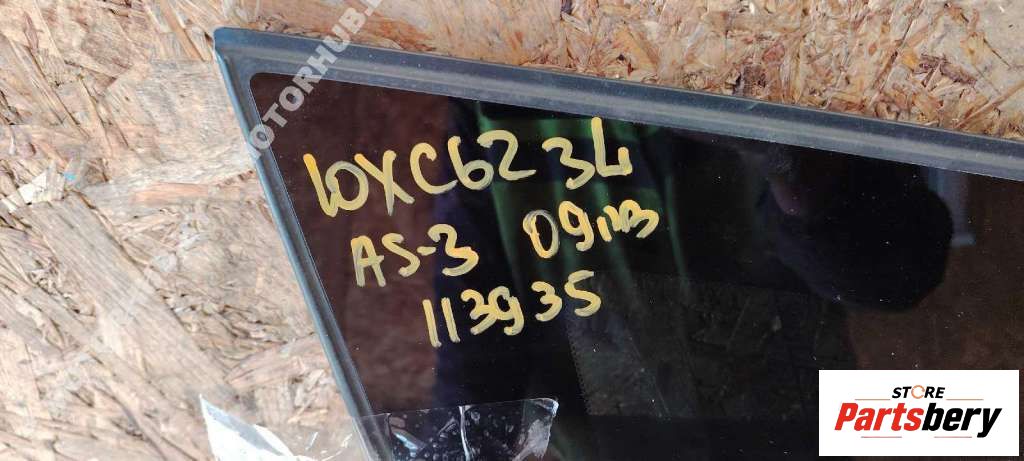 MOTORHUB.
WXC62 34
AS-3 09
113935
STORE
Partsbery